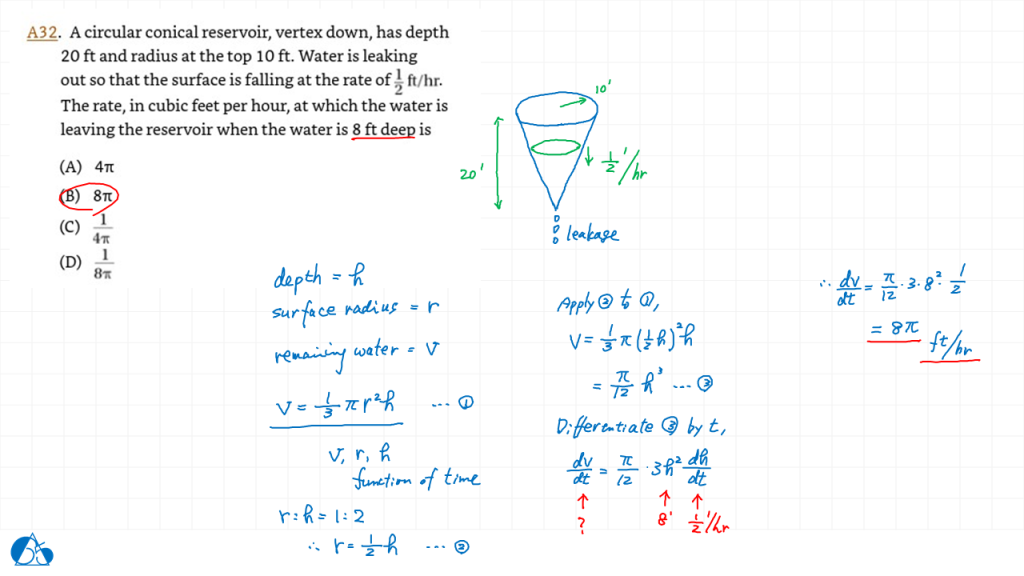 A32. A circular conical reservoir, vertex down, has depth
20 ft and radius at the top 10 ft. Water is leaking
out so that the surface is falling at the rate of 1/2 ft/hr.
The rate, in cubic feet per hour, at which the water is
leaving the reservoir when the water is 8 ft deep is
(A) 4π
(B) 8π
(C) 1/4π
(D) 1/8π
10'
20'
1/2'/hr
leakage
depth = h
surface radius = r
remaining water = V
V = 1/3 π r²h ... ①
V, r, h
function of time
r : h = 1 : 2
∴ r = 1/2 h ... ②
Apply ② to ①,
V = 1/3 π (1/2 h)² h
= π/12 h³ ... ③
Differentiate ③ by t,
dV/dt = π/12 · 3h² dh/dt
?
8'
1/2'/hr
∴ dV/dt = π/12 · 3 · 8² · 1/2
= 8π ft/hr